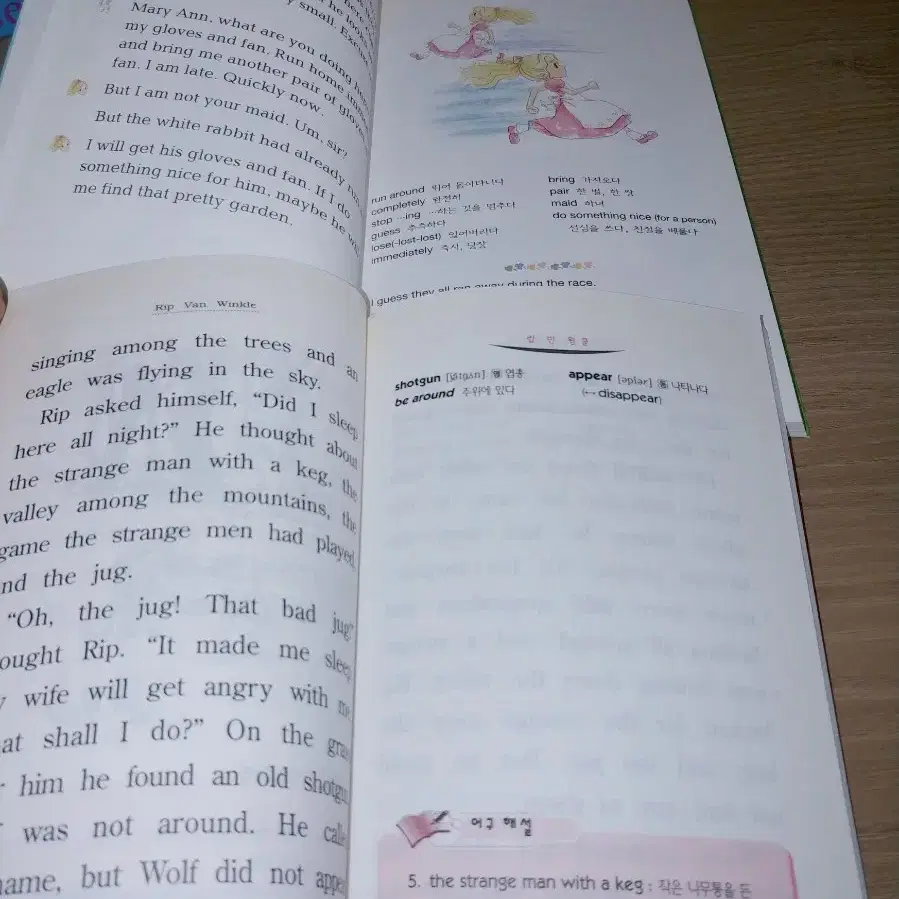 Mary Ann, what are you doing here
my gloves and fan. Run home
and bring me another pair of gloves
fan. I am late. Quickly now.
small.
But I am not your maid. Um, sir?
But the white rabbit had already
I will get his gloves and fan. If I do
something nice for him, maybe he
me find that pretty garden.
run around 뛰어 돌아다니다
completely 완전히
stop …ing …하는 것을 멈추다
guess 추측하다
lose(-lost-lost) 잃어버리다
immediately 즉시, 당장
bring 가져오다
pair 한 벌, 한 쌍
maid 하녀
do something nice (for a person)
선심을 쓰다, 친절을 베풀다
I guess they all ran away during the race.
Rip Van Winkle
singing among the trees and an
eagle was flying in the sky.
Rip asked himself, “Did I sleep
here all night?” He thought about
the strange man with a keg, the
valley among the mountains, the
game the strange men had played
nd the jug.
“Oh, the jug! That bad jug”
ought Rip. “It made me sleep
wife will get angry with me
at shall I do?” On the grass
him he found an old shotgun
was not around. He called
name, but Wolf did not appe
립 반 윙클
shotgun [ʃátgʌ̀n] 명 엽총
be around 주위에 있다
appear [əpíər] 동 나타나다
(↔ disappear)
어구 해설
5. the strange man with a keg : 작은 나무통을 든